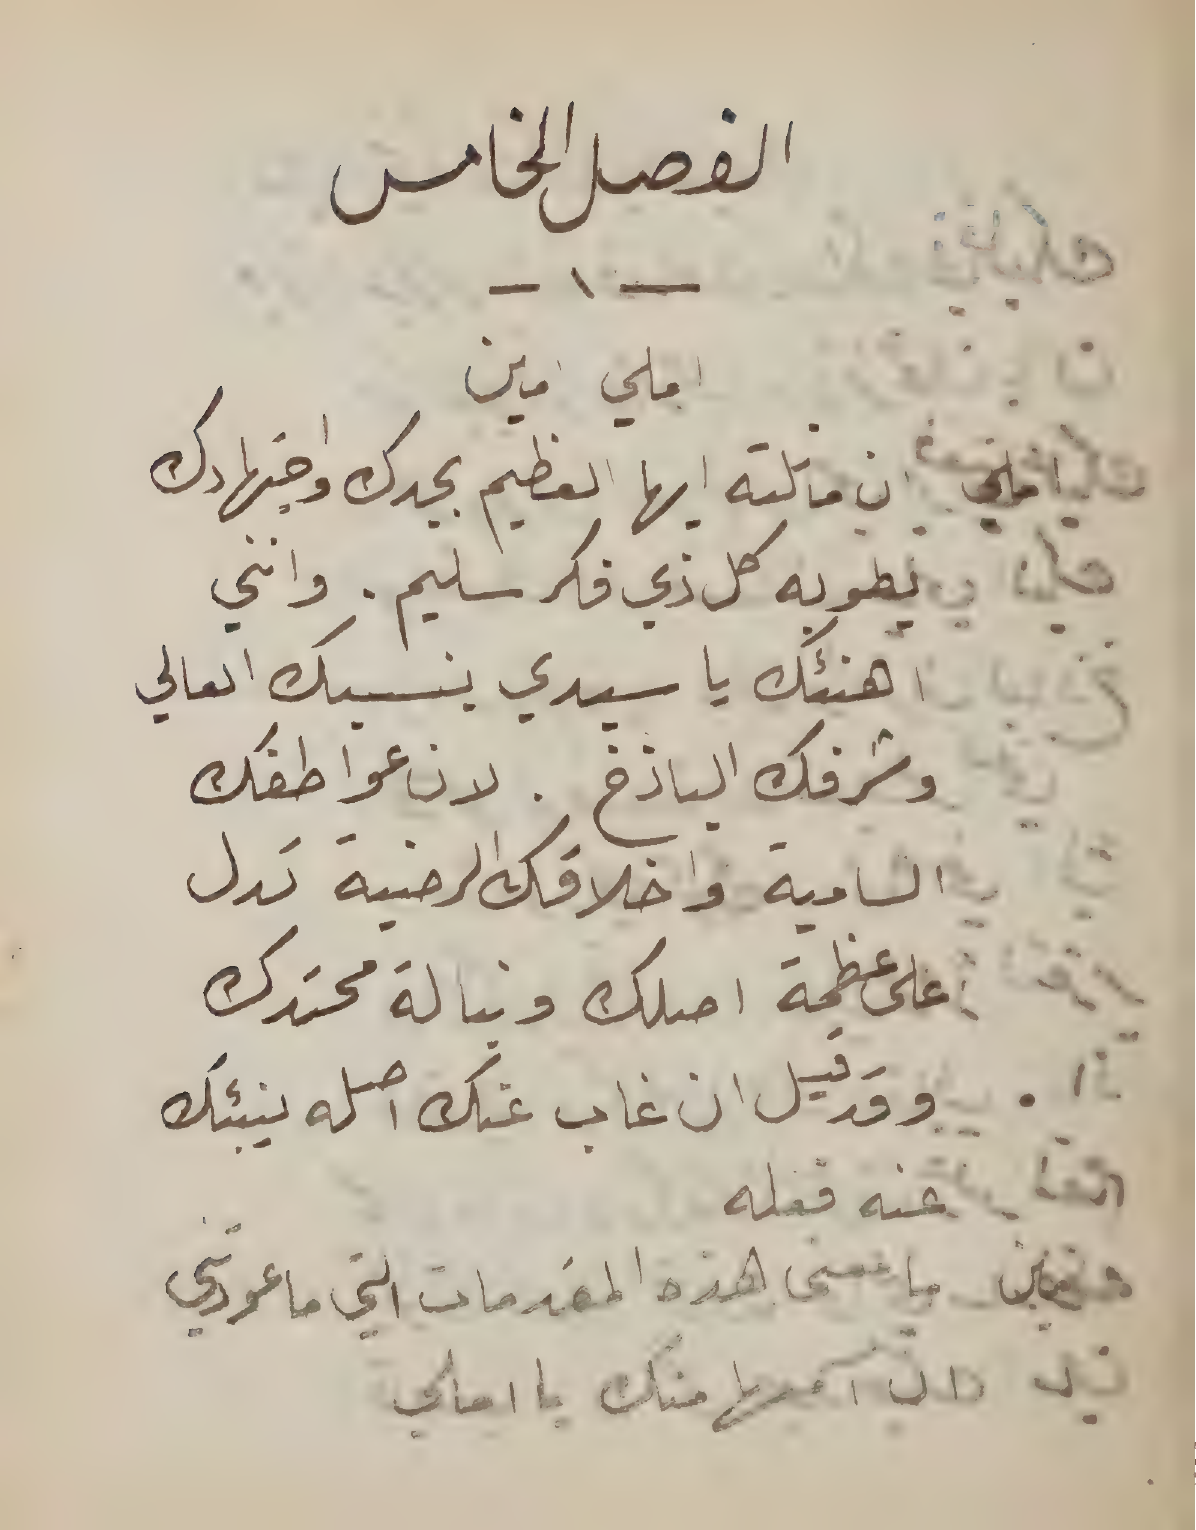 الفصل الخامس
— ١ —
املي امين
املي ان ما نلته ايها العظيم بجدك واجتهادك
يطوبه كل ذي فكر سليم . وانني
اهنئك يا سيدي بنسبك العالي
وشرفك الباذخ . لان عواطفك
السامية واخلاقك الرضية تدل
على عظمة اصلك ونبالة محتدك
. وقد قيل ان غاب عنك اصله ينبئك
عنه فعله
امين ما معنى هذه المقدمات التي ما عودتني
ان اسمعها منك يا املي